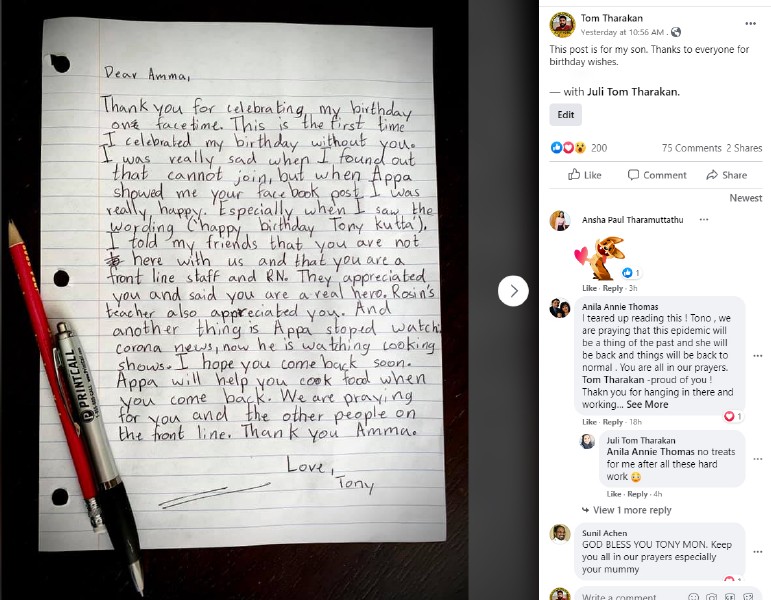 Dear Amma,
Thank you for celebrating my birthday
one facetime. This is the first time
I celebrated my birthday without you.
I was really sad when I found out
that cannot join, but when Appa
showed me your facebook post I was
really happy. Especially when I saw the
wording (happy birthday Tony Kutta).
I told my friends that you are not
here with us and that you are a
front line staff and RN. They appreciated
you and said you are a real hero. Rosin's
teacher also appreciated you. And
another thing is Appa stoped watch
corona news, now he is wathing cooking
shows. I hope you come back soon.
Appa will help you cook food when
you come back. We are praying
for you and the other people on
the front line. Thank you Amma.
Love,
Tony
PRINTCALL
Tom Tharakan
Yesterday at 10:56 AM .
This post is for my son. Thanks to everyone for
birthday wishes.
— with Juli Tom Tharakan.
Edit
200
75 Comments 2 Shares
Like Comment Share
Newest
Ansha Paul Tharamuttathu
1
Like · Reply · 3h
Anila Annie Thomas
I teared up reading this ! Tono , we
are praying that this epidemic will
be a thing of the past and she will
be back and things will be back to
normal . You are all in our prayers.
Tom Tharakan -proud of you !
Thakn you for hanging in there and
working... See More
1
Like · Reply · 18h
Juli Tom Tharakan
Anila Annie Thomas no treats
for me after all these hard
work
Like · Reply · 4h
View 1 more reply
Sunil Achen
GOD BLESS YOU TONY MON. Keep
you all in our prayers especially
your mummy
1
Write a comment